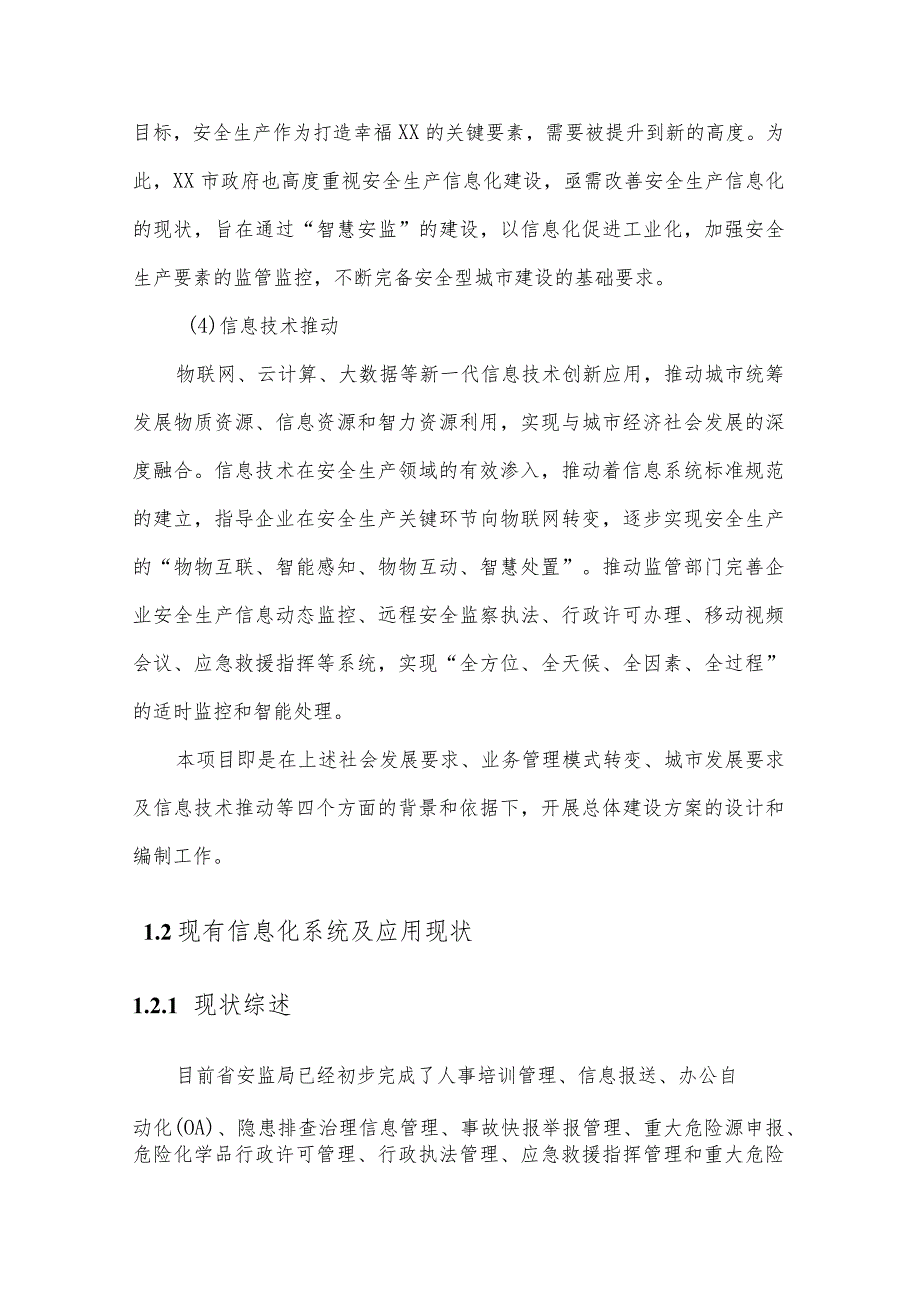 目标，安全生产作为打造幸福XX的关键要素，需要被提升到新的高度。为
此，XX市政府也高度重视安全生产信息化建设，亟需改善安全生产信息化
的现状，旨在通过“智慧安监”的建设，以信息化促进工业化，加强安全
生产要素的监管监控，不断完备安全型城市建设的基础要求。
(4)信息技术推动
物联网、云计算、大数据等新一代信息技术创新应用，推动城市统筹
发展物质资源、信息资源和智力资源利用，实现与城市经济社会发展的深
度融合。信息技术在安全生产领域的有效渗入，推动着信息系统标准规范
的建立，指导企业在安全生产关键环节向物联网转变，逐步实现安全生产
的“物物互联、智能感知、物物互动、智慧处置”。推动监管部门完善企
业安全生产信息动态监控、远程安全监察执法、行政许可办理、移动视频
会议、应急救援指挥等系统，实现“全方位、全天候、全因素、全过程”
的适时监控和智能处理。
本项目即是在上述社会发展要求、业务管理模式转变、城市发展要求
及信息技术推动等四个方面的背景和依据下，开展总体建设方案的设计和
编制工作。
1.2现有信息化系统及应用现状
1.2.1 现状综述
目前省安监局已经初步完成了人事培训管理、信息报送、办公自
动化(OA)、隐患排查治理信息管理、事故快报举报管理、重大危险源申报、
危险化学品行政许可管理、行政执法管理、应急救援指挥管理和重大危险